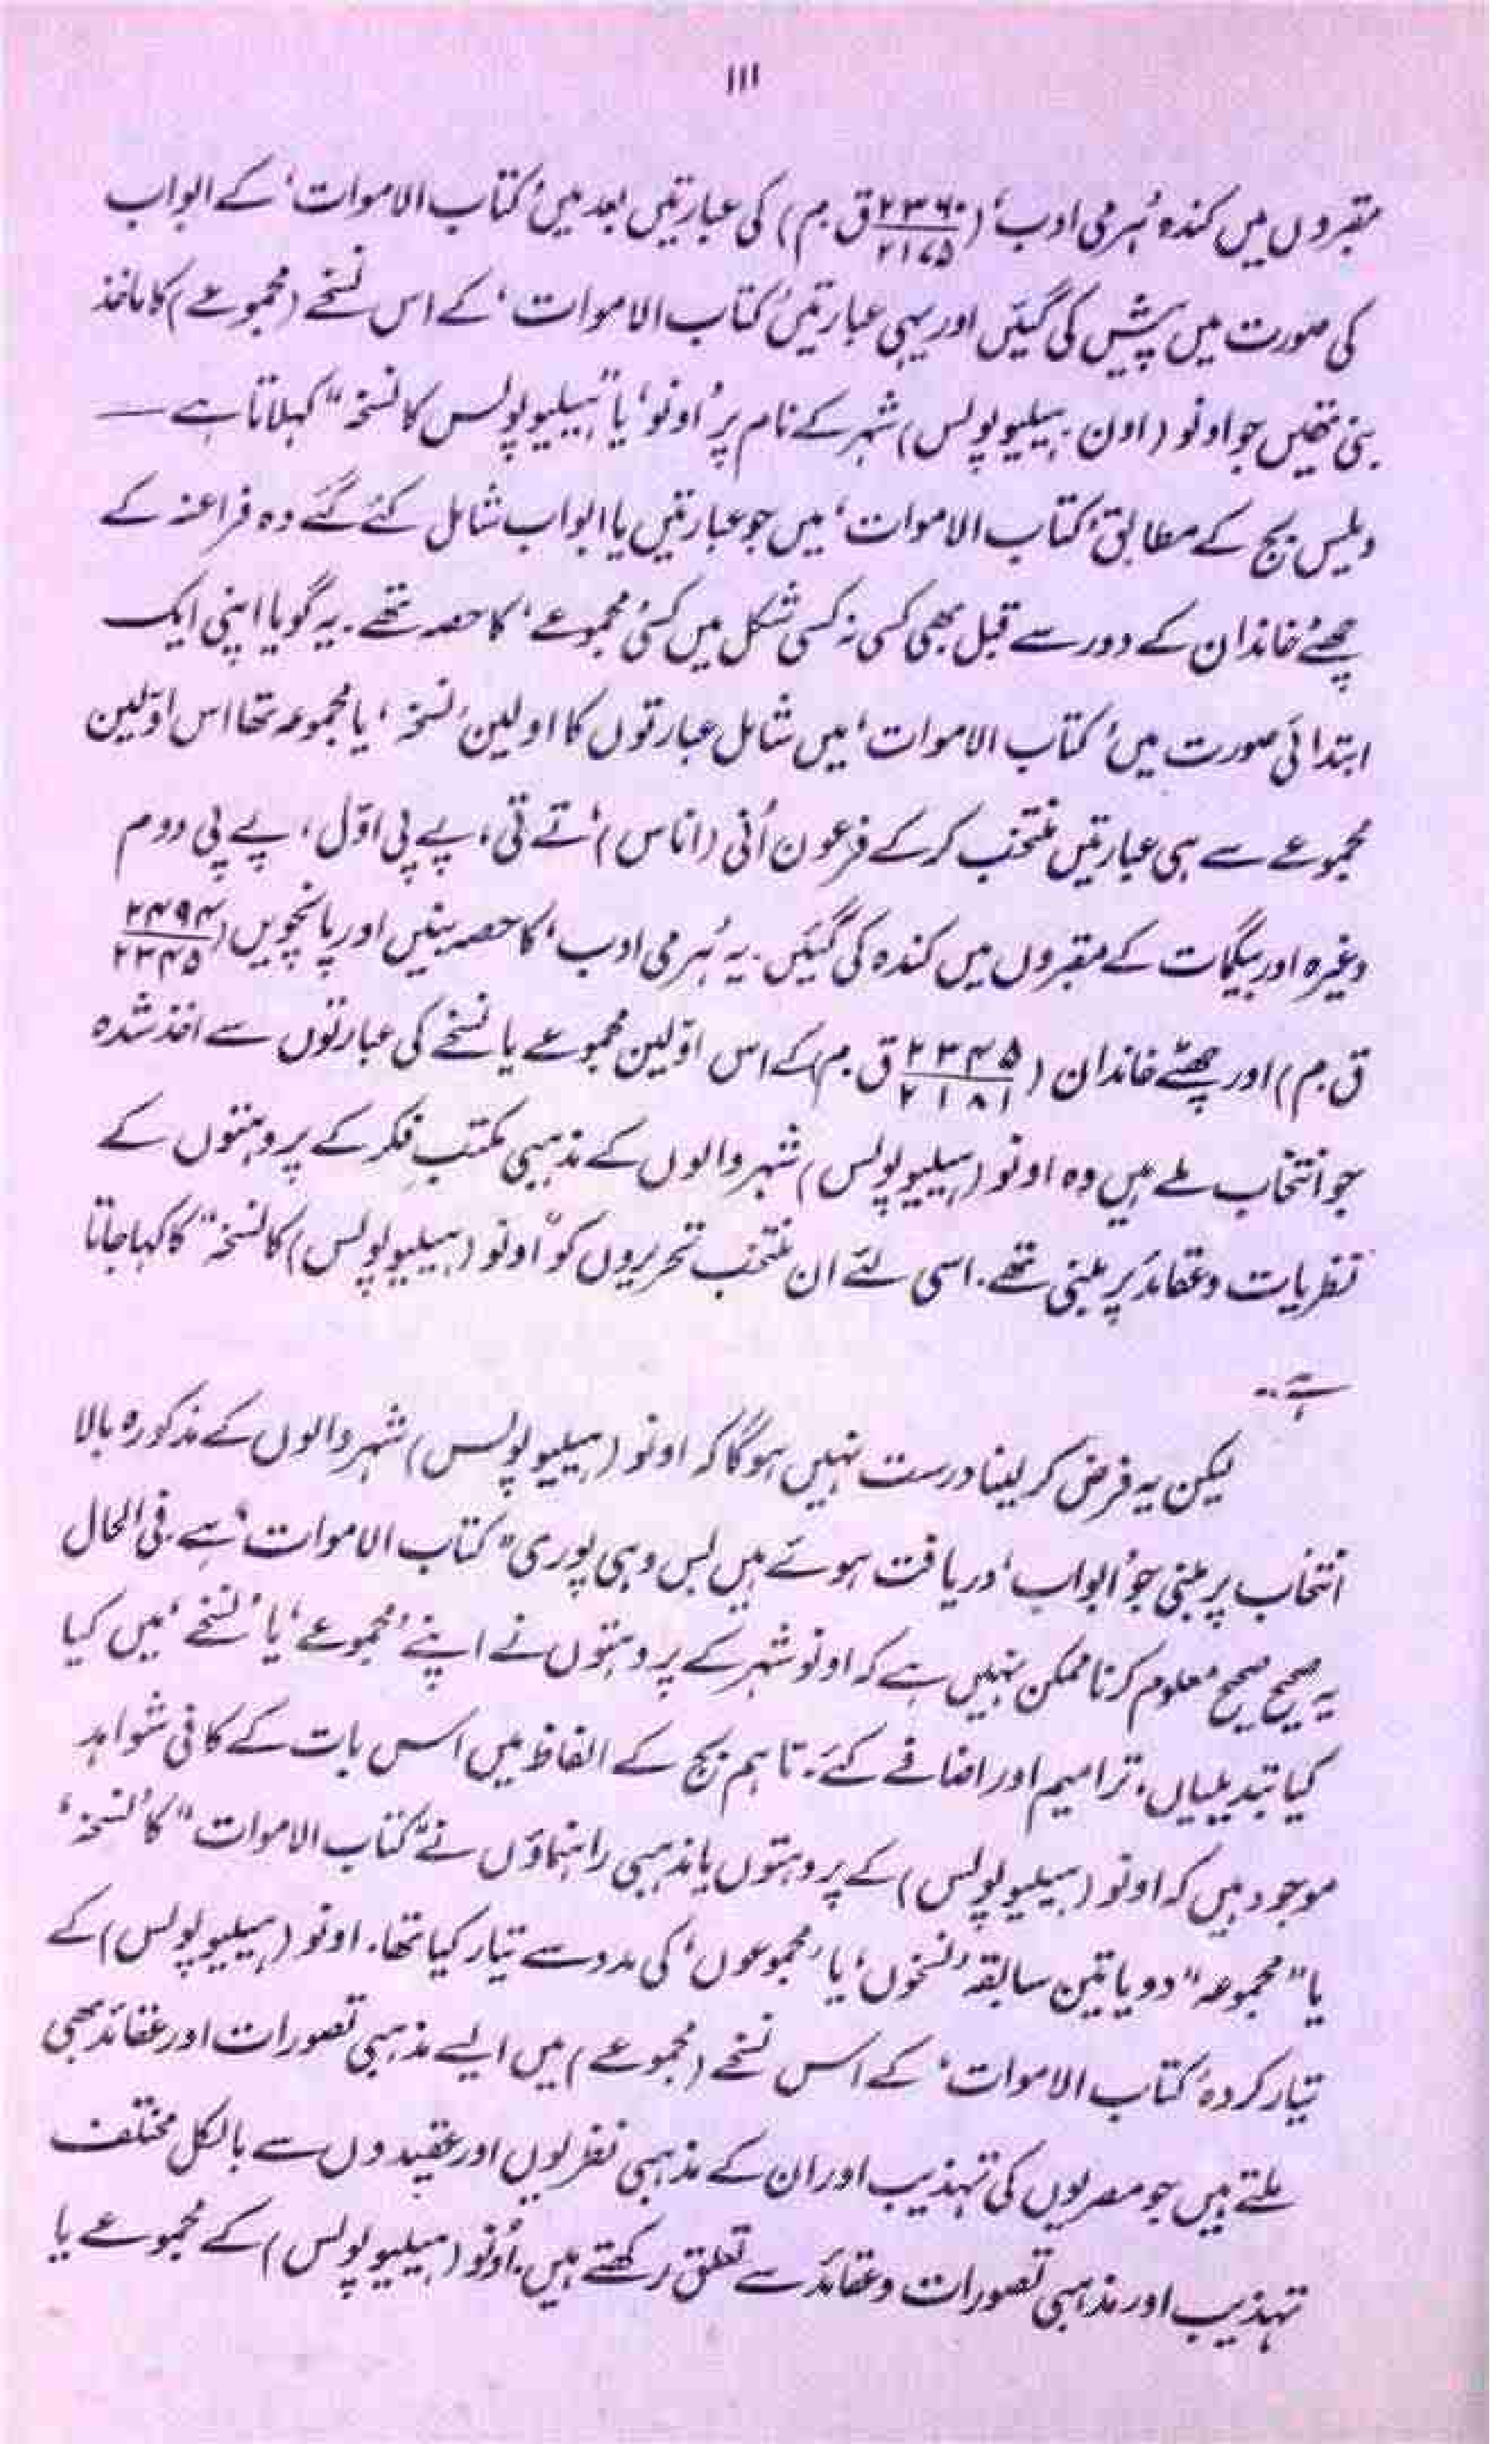 ۱۱۱
مقبروں میں کندہ ’ہرمی ادب‘ (۲۳۶۰/۲۱۷۵ ق.م) کی عبارتیں بعد میں ’کتاب الاموات‘ کے ابواب
کی صورت میں پیش کی گئیں اور یہی عبارتیں ’کتاب الاموات‘ کے اس نسخے (مجموعے) کا ماخذ
بنی تھیں جو اونو (اون، ہیلیو پولس) شہر کے نام پر ’اونو‘ یا ”ہیلیو پولس کا نسخہ“ کہلاتا ہے —
ویلس بج کے مطابق ’کتاب الاموات‘ میں جو عبارتیں یا ابواب شامل کئے گئے وہ فراعنہ کے
چھٹے خاندان کے دور سے قبل بھی کسی نہ کسی شکل میں کسی ’مجموعے‘ کا حصہ تھے۔ یہ گویا اپنی ایک
ابتدائی صورت میں ’کتاب الاموات‘ میں شامل عبارتوں کا اولین ’نسخہ‘ یا مجموعہ تھا اس اوّلین
مجموعے سے ہی عبارتیں منتخب کر کے فرعون اُنی (اناس)، تے تی، پے پی اوّل، پے پی دوم
وغیرہ اور بیگمات کے مقبروں میں کندہ کی گئیں۔ یہ ’ہرمی ادب‘ کا حصہ بنیں اور پانچویں (۲۴۹۴/۲۳۴۵
ق.م) اور چھٹے خاندان (۲۳۴۵/۲۱۸۱ ق.م) کے اس اوّلین مجموعے یا نسخے کی عبارتوں سے اخذ شدہ
جو انتخاب ملے ہیں وہ اونو (ہیلیو پولس) شہر والوں کے مذہبی مکتبِ فکر کے پروہتوں کے
نظریات و عقائد پر مبنی تھے۔ اسی لئے ان منتخب تحریروں کو ”اونو (ہیلیو پولس) کا نسخہ“ کا کہا جاتا
ہے۔
لیکن یہ فرض کر لینا درست نہیں ہوگا کہ اونو (ہیلیو پولس) شہر والوں کے مذکورہ بالا
انتخاب پر مبنی جو ’ابواب‘ دریافت ہوئے ہیں بس وہی پوری ”کتاب الاموات“ ہے۔ فی الحال
یہ صحیح صحیح معلوم کرنا ممکن نہیں ہے کہ اونو شہر کے پروہتوں نے اپنے ’مجموعے‘ یا ’نسخے‘ میں کیا
کیا تبدیلیاں، ترامیم اور اضافے کئے۔ تاہم بج کے الفاظ میں اس بات کے کافی شواہد
موجود ہیں کہ اونو (ہیلیو پولس) کے پروہتوں یا مذہبی راہنماؤں نے ”کتاب الاموات“ کا ’نسخہ‘
یا ”مجموعہ“ دو یا تین سابقہ ’نسخوں‘ یا ’مجموعوں‘ کی مدد سے تیار کیا تھا۔ اونو (ہیلیو پولس) کے
تیار کردہ ’کتاب الاموات‘ کے اس نسخے (مجموعے) میں ایسے مذہبی تصورات اور عقائد بھی
ملتے ہیں جو مصریوں کی تہذیب اور ان کے مذہبی نظریوں اور عقیدوں سے بالکل مختلف
تہذیب اور مذہبی تصورات و عقائد سے تعلق رکھتے ہیں۔ اُونو (ہیلیو پولس) کے مجموعے یا